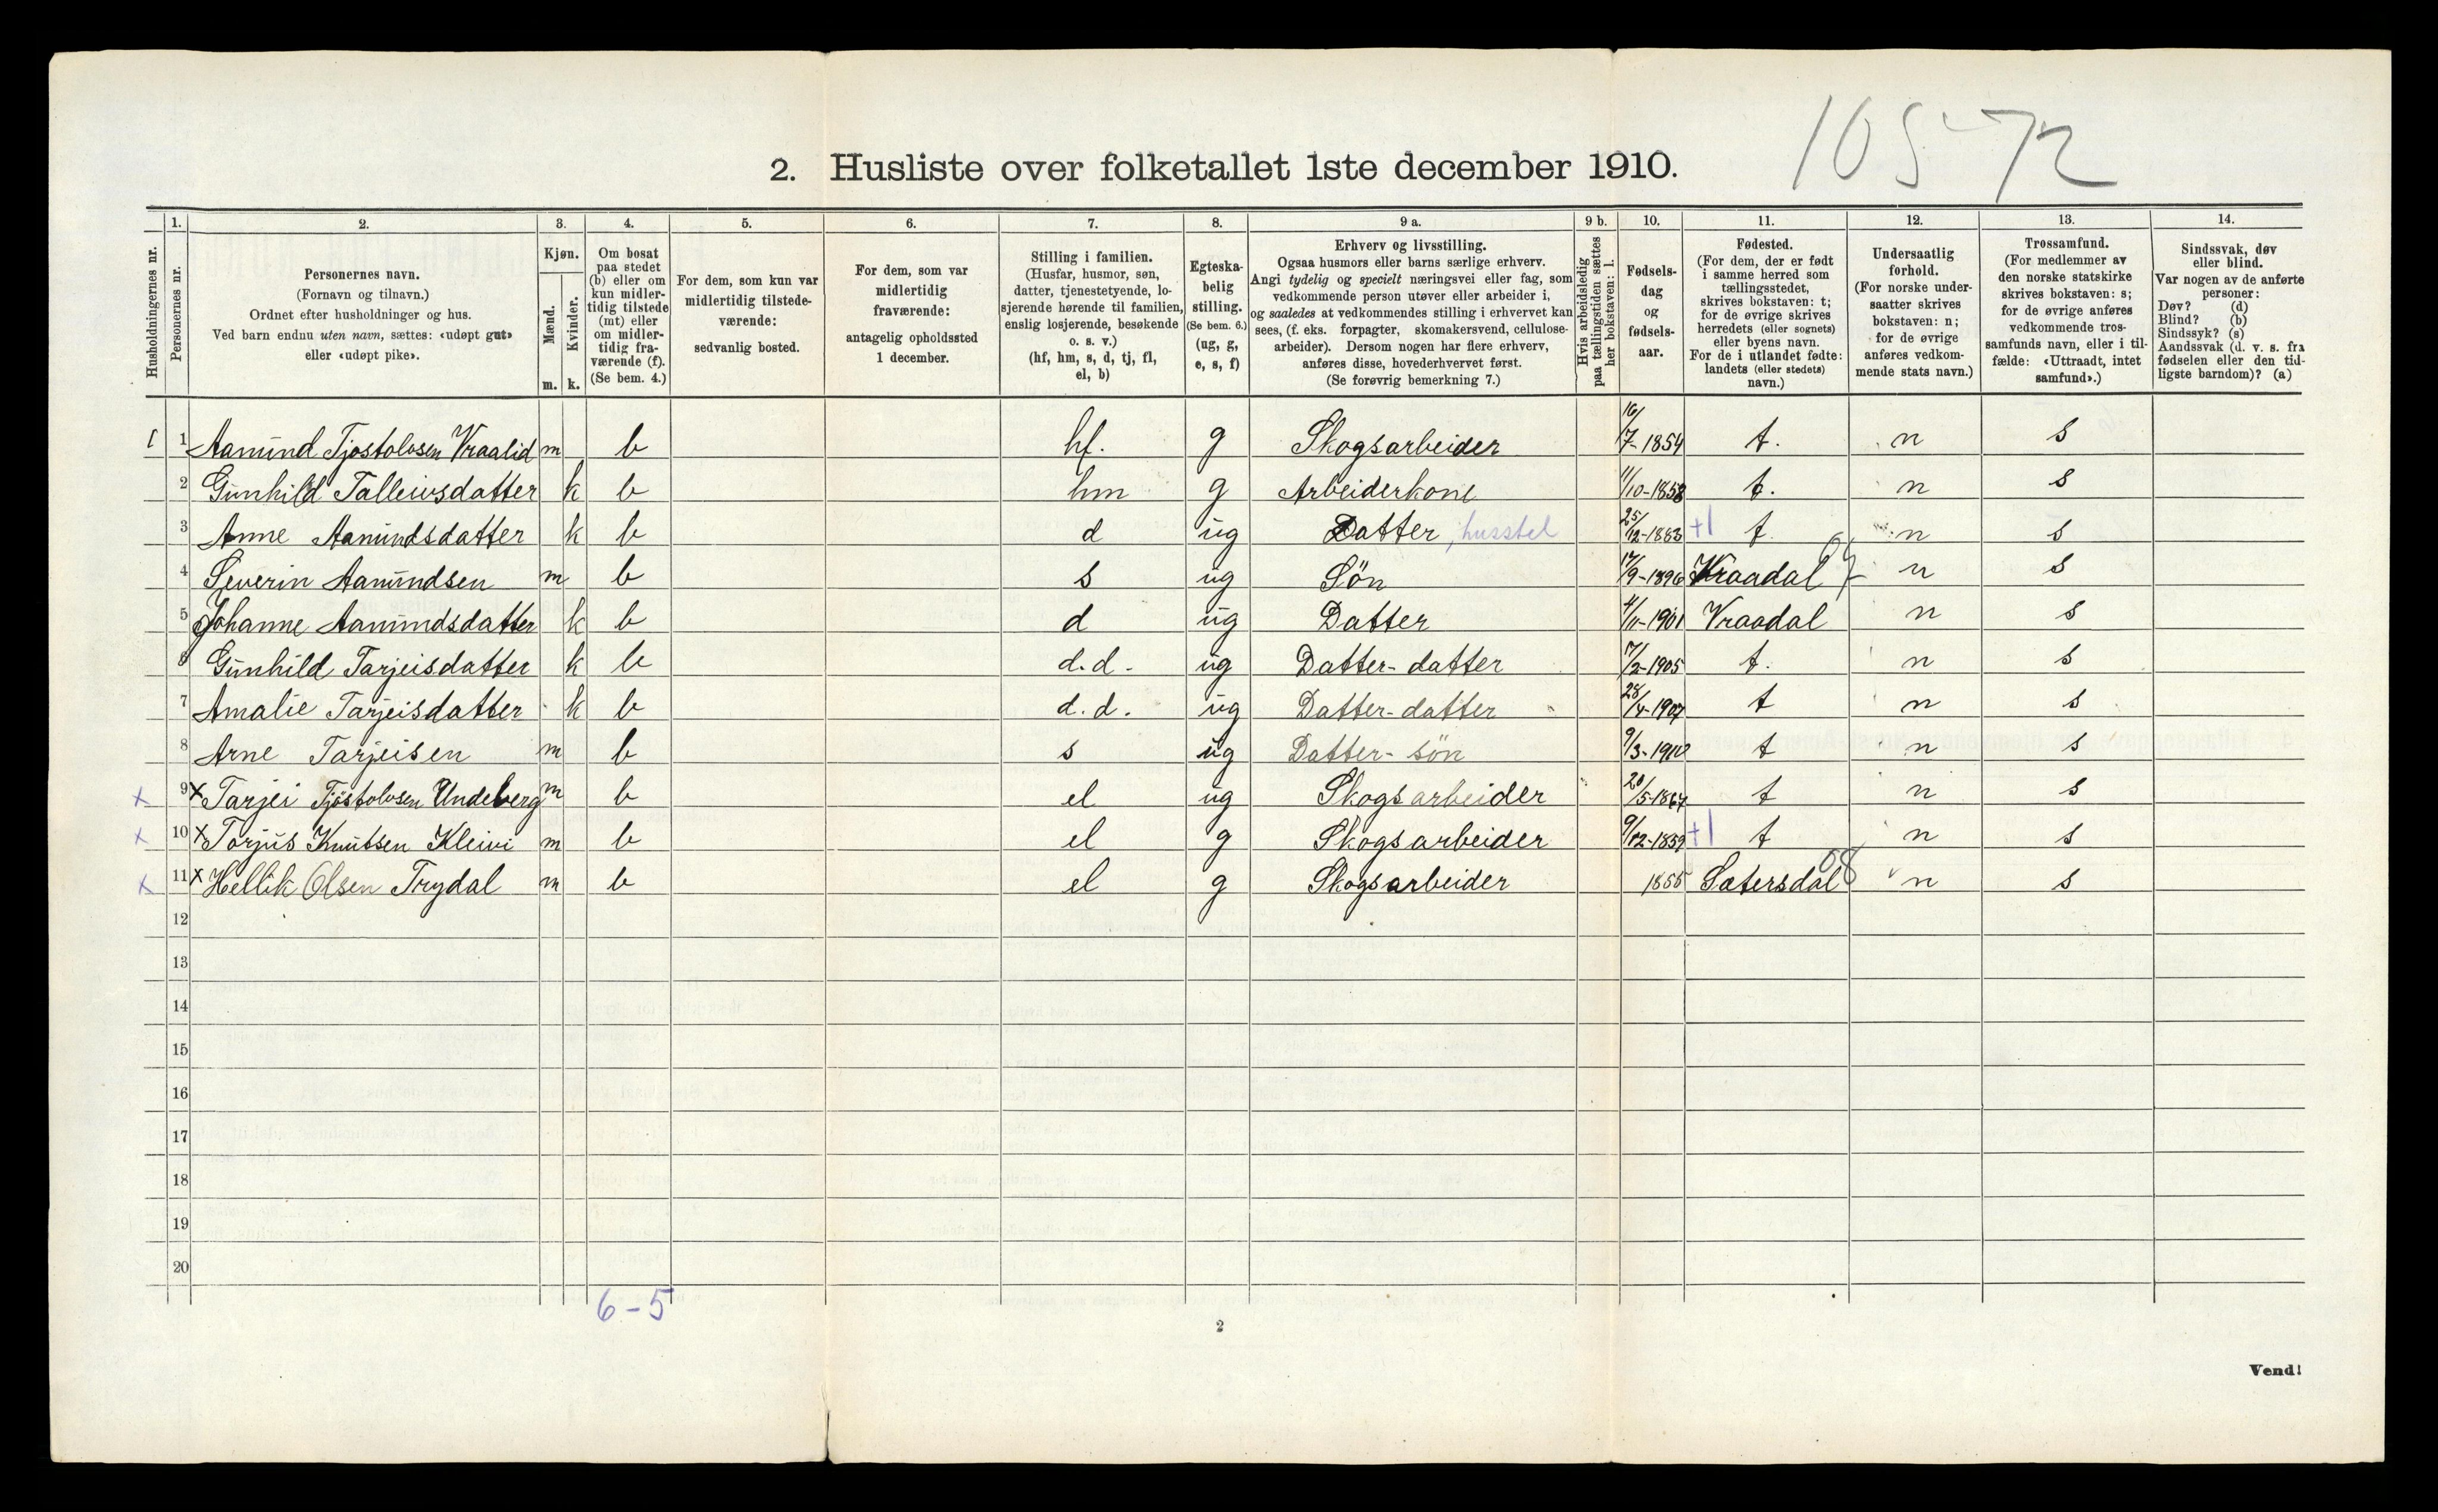 105-72
2. Husliste over folketallet 1ste december 1910.
Husholdningernes nr.
1. Personernes nr.
2. Personernes navn. (Fornavn og tilnavn.) Ordnet efter husholdninger og hus. Ved barn endnu uten navn, sættes: «udøpt gut» eller «udøpt pike».
3. Kjøn. Mænd. m. Kvinder. k.
4. Om bosat paa stedet (b) eller om kun midlertidig tilstede (mt) eller om midlertidig fraværende (f). (Se bem. 4.)
5. For dem, som kun var midlertidig tilstedeværende: sedvanlig bosted.
6. For dem, som var midlertidig fraværende: antagelig opholdssted 1 december.
7. Stilling i familien. (Husfar, husmor, søn, datter, tjenestetyende, losjerende hørende til familien, enslig losjerende, besøkende o. s. v.) (hf, hm, s, d, tj, fl, el, b)
8. Egteskabelig stilling. (Se bem. 6.) (ug, g, e, s, f)
9 a. Erhverv og livsstilling. Ogsaa husmors eller barns særlige erhverv. Angi tydelig og specielt næringsvei eller fag, som vedkommende person utøver eller arbeider i, og saaledes at vedkommendes stilling i erhvervet kan sees, (f. eks. forpagter, skomakersvend, cellulosearbeider). Dersom nogen har flere erhverv, anføres disse, hovederhvervet først. (Se forøvrig bemerkning 7.)
9 b. Hvis arbeidsledig paa tællingstiden sættes her bokstaven: l.
10. Fødselsdag og fødselsaar.
11. Fødested. (For dem, der er født i samme herred som tællingsstedet, skrives bokstaven: t; for de øvrige skrives herredets (eller sognets) eller byens navn. For de i utlandet fødte: landets (eller stedets) navn.)
12. Undersaatlig forhold. (For norske undersaatter skrives bokstaven: n; for de øvrige anføres vedkommende stats navn.)
13. Trossamfund. (For medlemmer av den norske statskirke skrives bokstaven: s; for de øvrige anføres vedkommende trossamfunds navn, eller i tilfælde: «Uttraadt, intet samfund».)
14. Sindssvak, døv eller blind. Var nogen av de anførte personer: Døv? (d) Blind? (b) Sindssyk? (s) Aandssvak (d. v. s. fra fødselen eller den tidligste barndom)? (a)
1 1 Aamund Tjostolvsen Vraalid m b hf. g Skogsarbeider 16/7-1854 t. n s
2 Gunhild Talleivsdatter k b hm g Arbeiderkone 11/10-1858 t. n s
3 Anne Aamundsdatter k b d ug Datter, husstel 25/12-1883 +1 t n s
4 Severin Aamundsen m b s ug Sön 17/9-1896 Vraadal n s
5 Johanne Aamundsdatter k b d ug Datter 4/11-1901 Vraadal n s
6 Gunhild Tarjeisdatter k b d.d. ug Datter-datter 7/2-1905 t. n s
7 Amalie Tarjeisdatter k b d.d. ug Datter-datter 28/4-1907 t n s
8 Arne Tarjeisen m b s ug Datter-sön 9/3-1910 t n s
x 9 x Tarjei Tjöstolvsen Undeberg m b el ug Skogsarbeider 20/5-1867 t n s
x 10 x Torjus Knutsen Kleivi m b el g Skogsarbeider 9/12-1859 +1 t n s
x 11 x Hellik Olsen Trydal m b el g Skogsarbeider 1855 Sætersdal 08 n s
12
13
14
15
16
17
18
19
20
6-5
2
Vend!